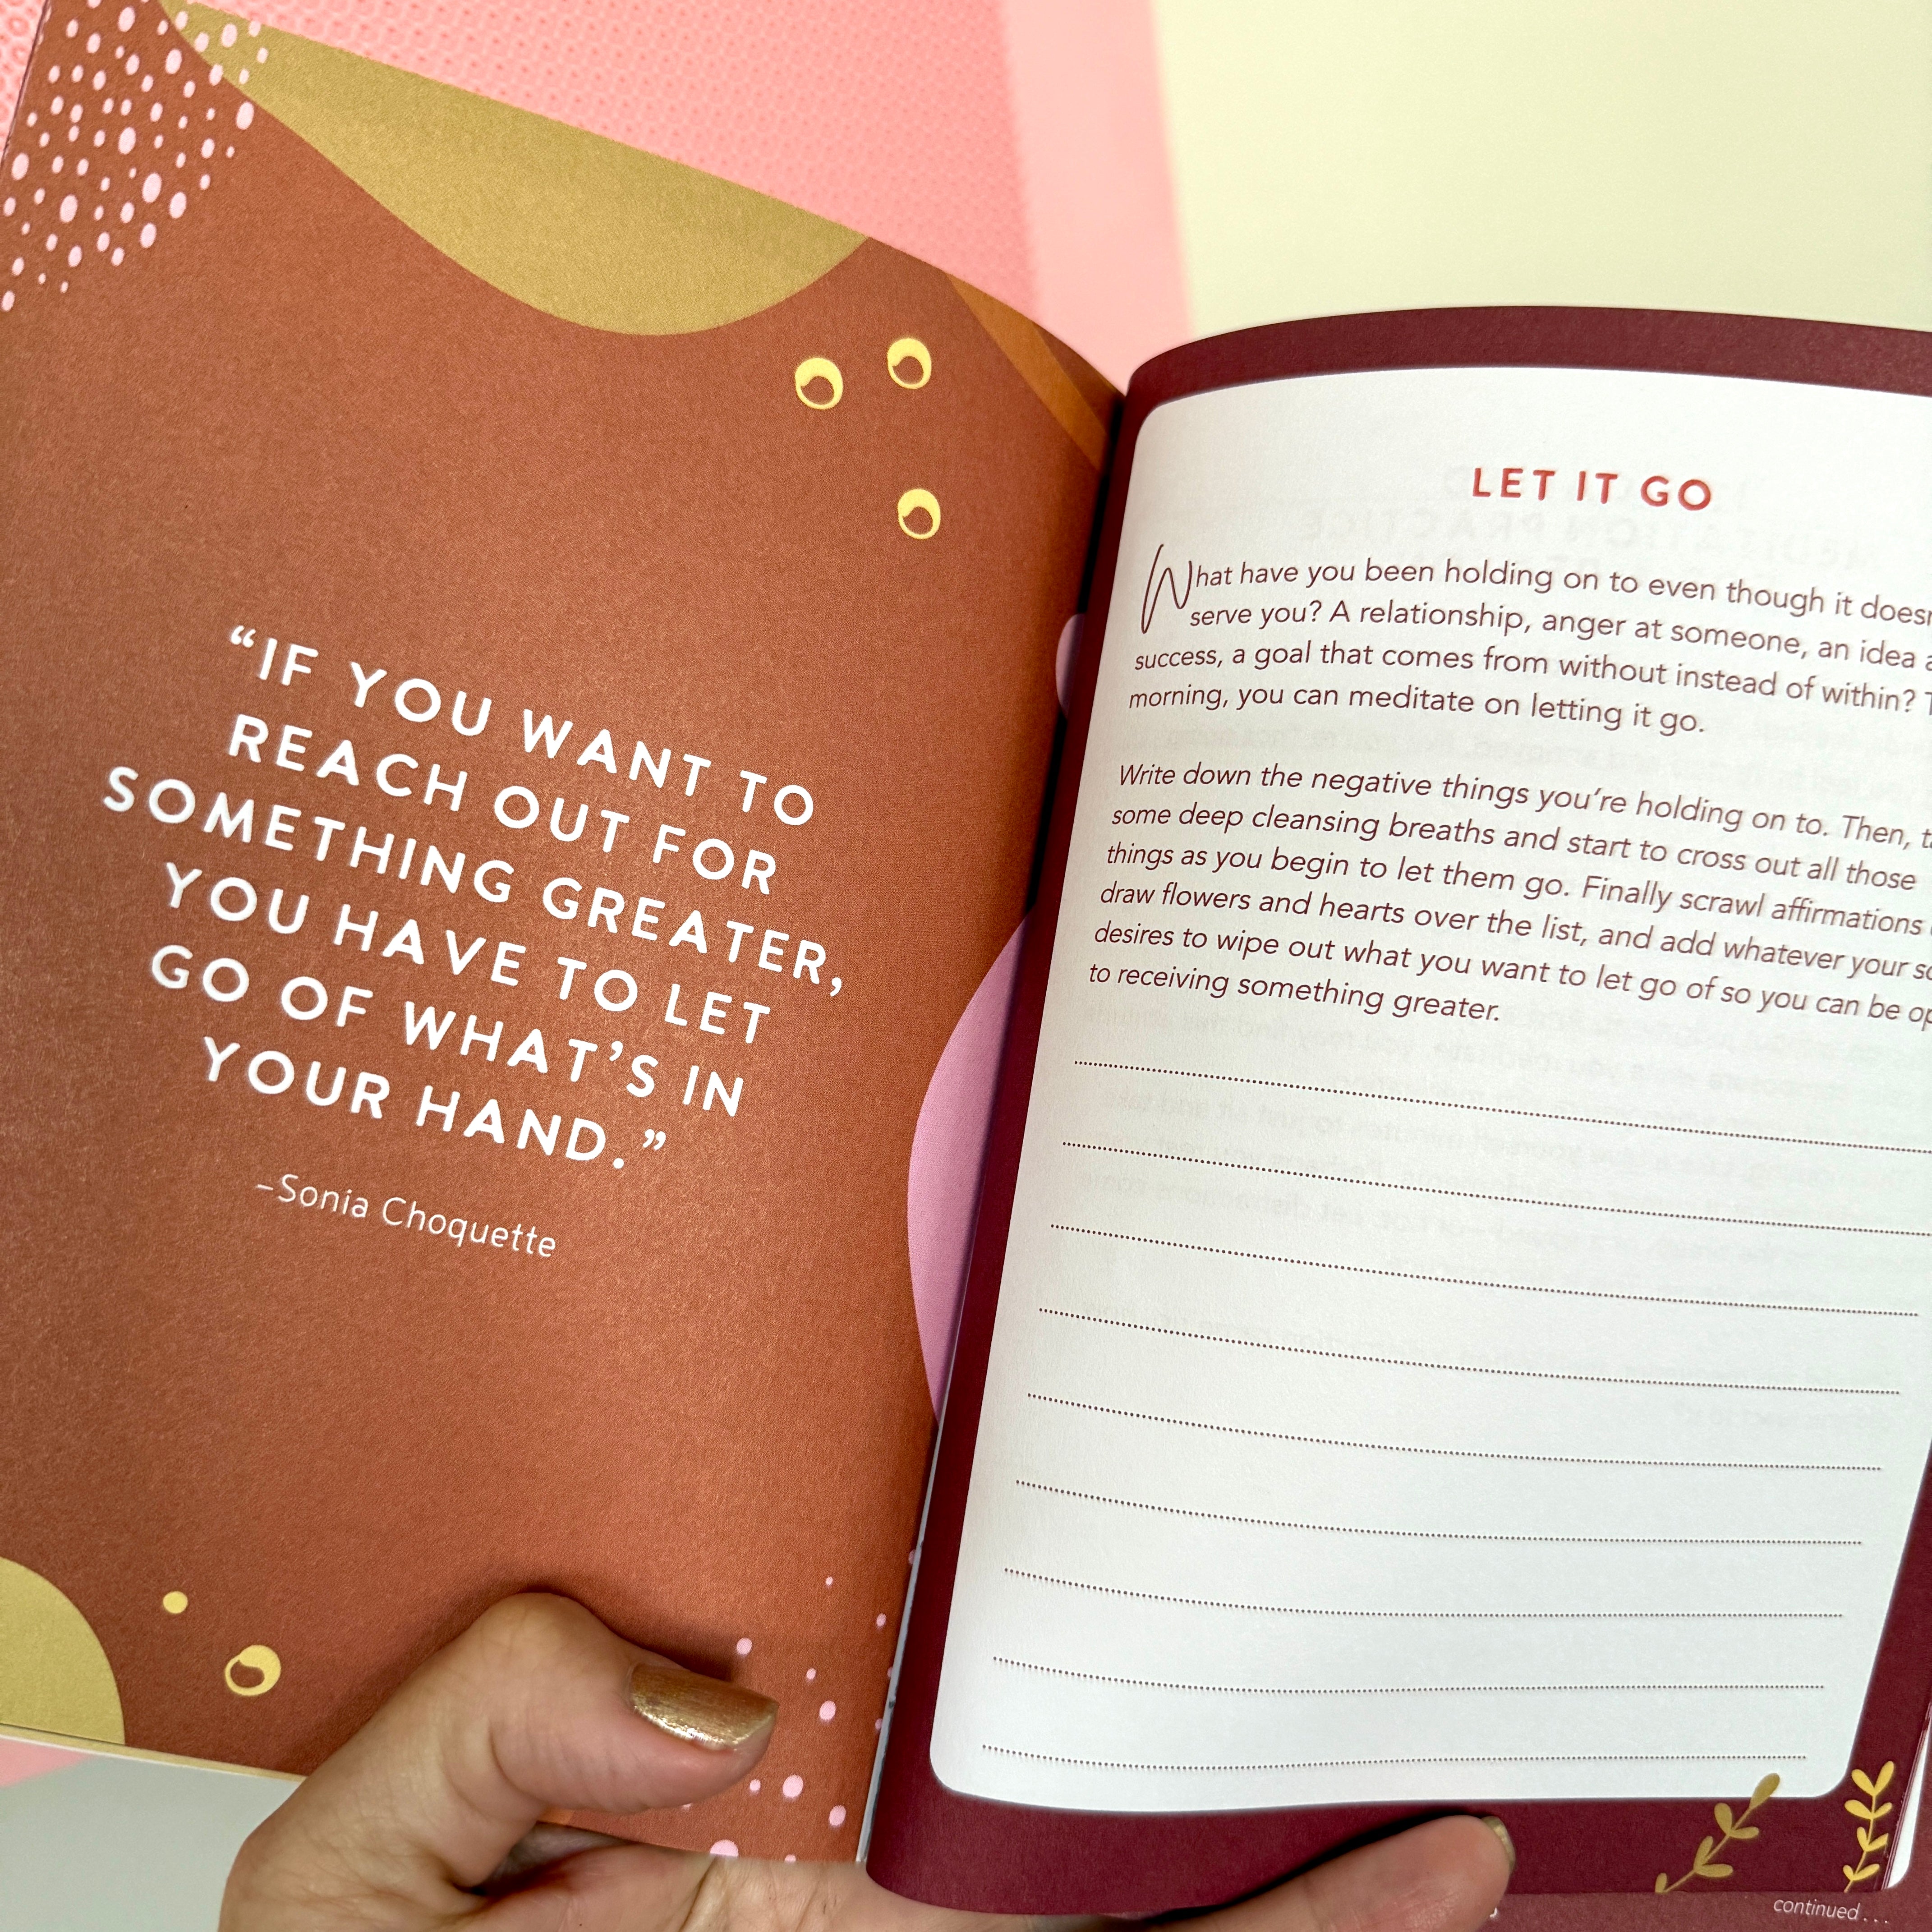 “IF YOU WANT TO
REACH OUT FOR
SOMETHING GREATER,
YOU HAVE TO LET
GO OF WHAT’S IN
YOUR HAND.”
–Sonia Choquette
LET IT GO
What have you been holding on to even though it
serve you? A relationship, anger at someone, an idea
success, a goal that comes from without instead of within?
morning, you can meditate on letting it go.
Write down the negative things you’re holding on to. Then,
some deep cleansing breaths and start to cross out all those
things as you begin to let them go. Finally scrawl affirmations
draw flowers and hearts over the list, and add whatever your
desires to wipe out what you want to let go of so you can be
to receiving something greater.
continued...